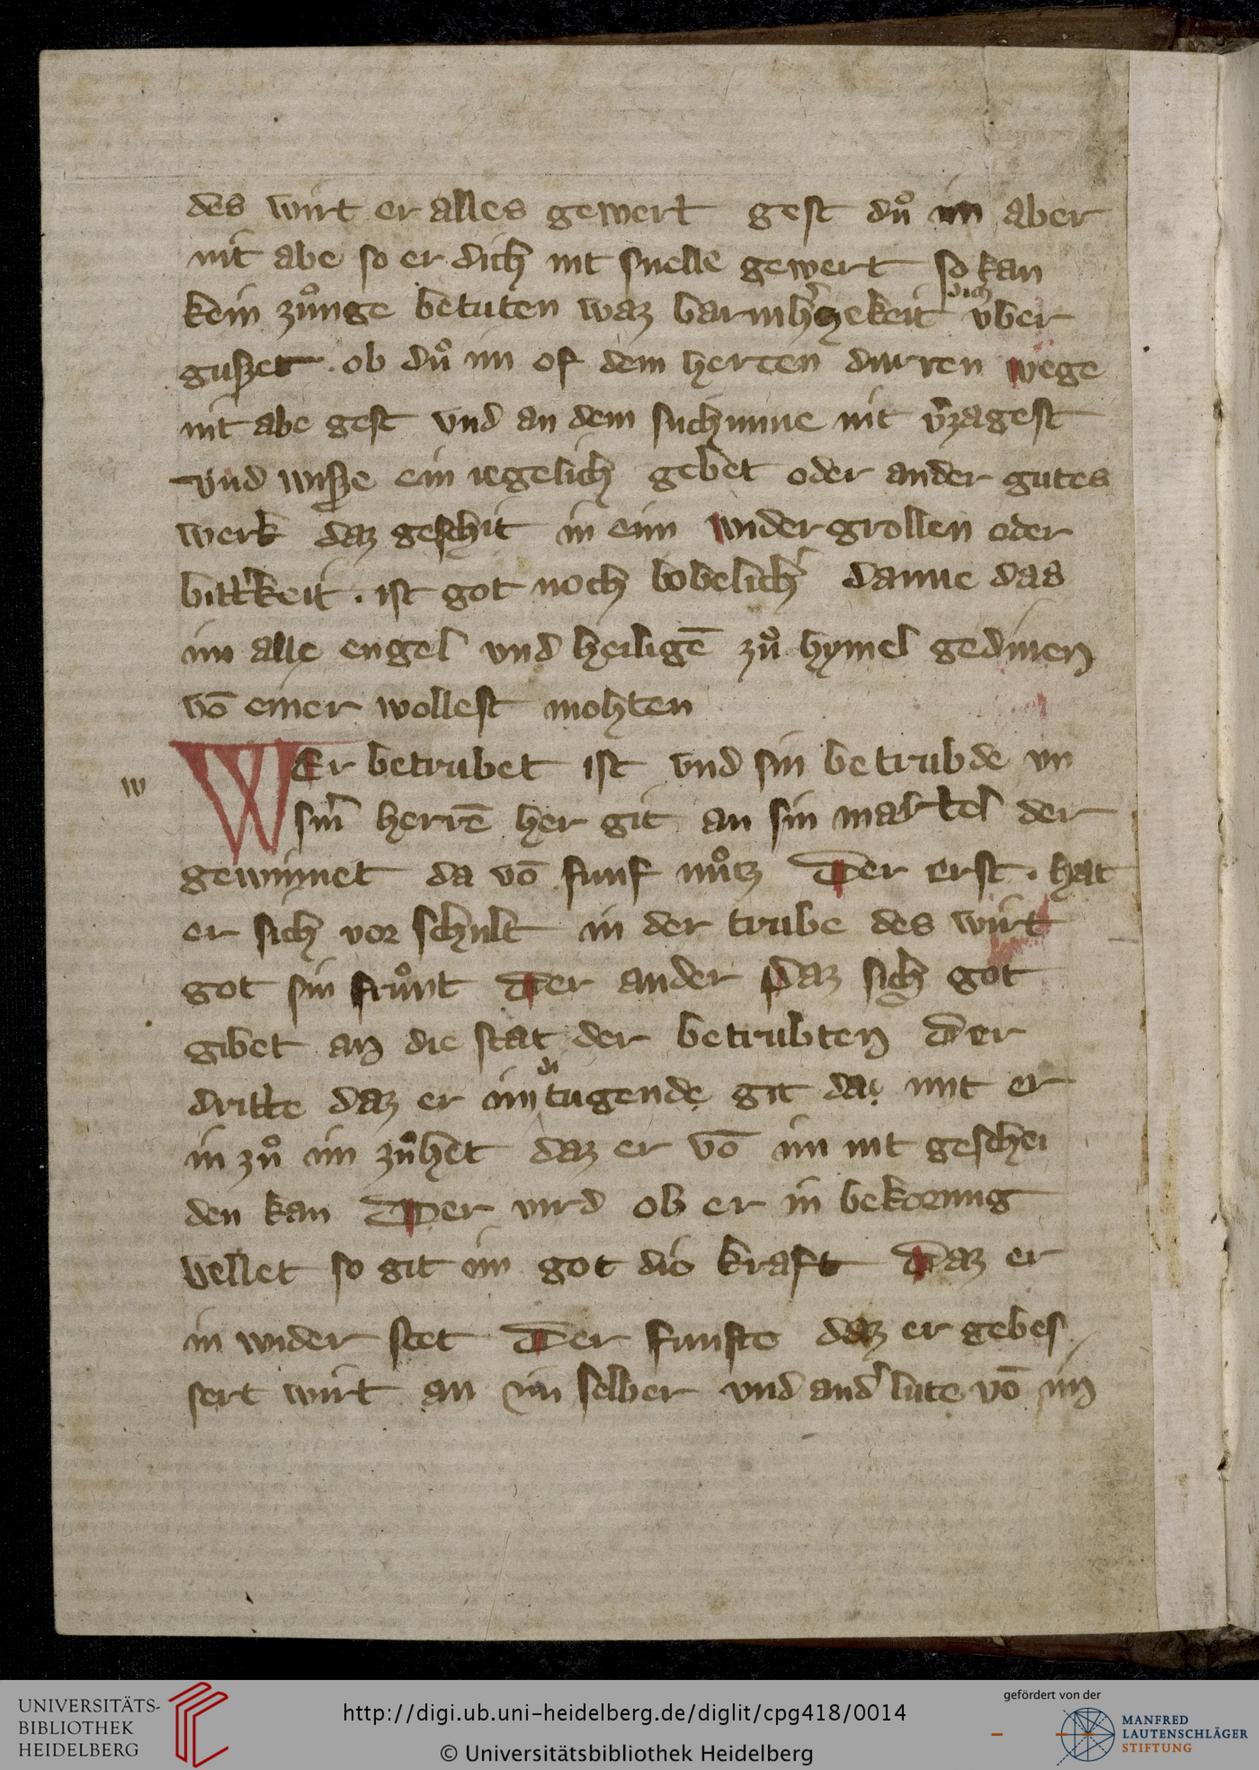 des wirt er alles gewert gest du̍ im aber
nit abe so er dich nit snelle gewert so kan
kein zuͦnge betuten waz barmh̍tzekeit dich vber
guszet . ob duͦ im of dem herten durren wege
nit abe gest vnd an dem suchunne nit v̍zagest
vnd wisze ein iegelich gebet oder ander gutes
werk daz geschit in eim widergrollen oder
bitt̍keit . ist got noch lobelich̍ danne das
im alle engel vnd heiligē zuͦ hymel gedinen
vō einer wollest mohten
w
WEr betrubet ist vnd sin betrubde vn
sim̍ herrē her git an sin martel der
gewinnet da vō funf nuͦtz Der erst . hat
er sich vor schult in der trube des wirt
got sin fruͦnt Der ander Daz sich got
gibet an die stat der betrubten Der
dritte daz er im di tugende git da mit er
in zuͦ im zuͦhet daz er vō im nit geschei
den kan Der vird ob er in bekorung
vellet so git im got die kraft Daz er
in wider stet Der funfte daz er gebes
sert wirt an im selber vnd and̍ lute vō im
UNIVERSITÄTS-
BIBLIOTHEK
HEIDELBERG
http://digi.ub.uni-heidelberg.de/diglit/cpg418/0014
© Universitätsbibliothek Heidelberg
gefördert von der
MANFRED
LAUTENSCHLÄGER
STIFTUNG